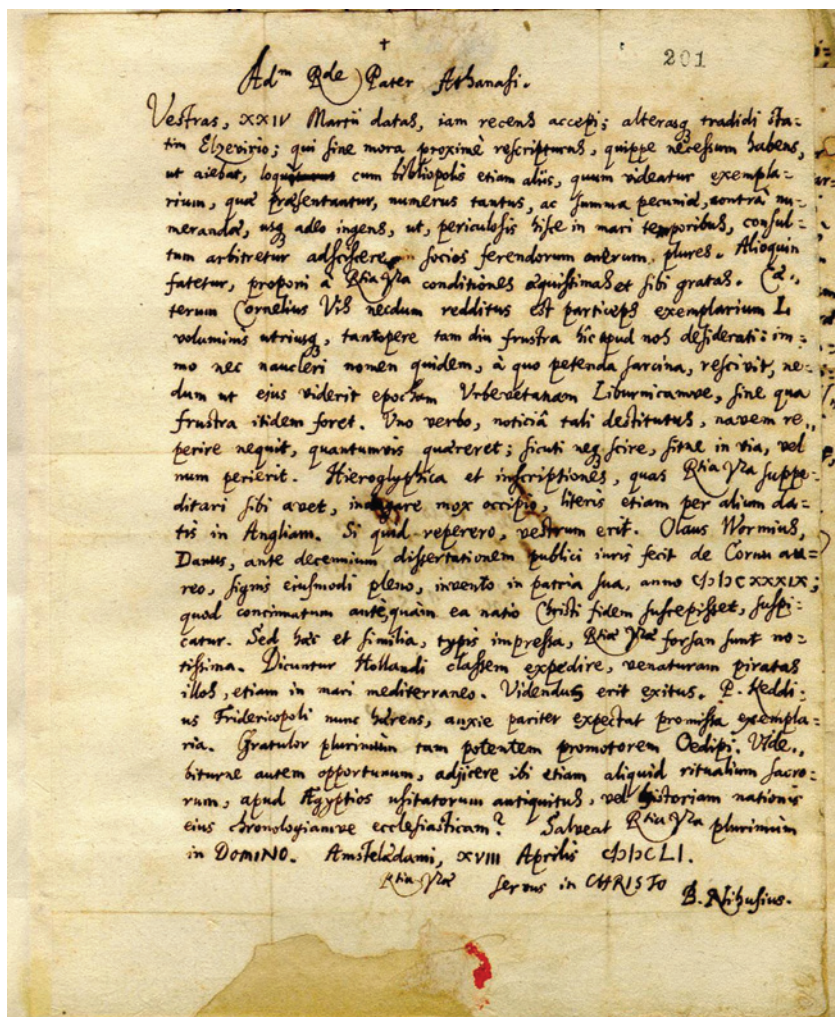 †
201
Adm Rde Pater Athanasi.
Vestras, XXIV Martii datas, iam recens accepi; alterasq tradidi sta=
tim Elzevirio; qui sine mora proximè rescripturus, quippe necessum habens,
ut aiebat, cum bibliopolis etiam aliis, quum videatur exempla=
rium, quæ præsentantur, numerus tantus, ac summa pecuniæ, contrà nu=
merandæ, usq adeo ingens, ut, periculosis hisce in mari temporibus, consul=
tum arbitretur adsciscere socios ferendorum onerum plures. Alioquin
fatetur, proponi à Rtia Vra conditiones æquissimas et sibi gratas. Cæ=
terum Cornelius Vis necdum redditus est particeps exemplarium L
voluminis utriusq, tantopere tam diu frustra hîc apud nos desiderati: im=
mo nec naucleri nomen quidem, à quo petenda sarcina, rescivit, ne=
dum ut ejus viderit epocham Urbevetanam Liburnicamve, sine qua
frustra itidem foret. Uno verbo, noticiâ tali destitutus, navem re=
perire nequit, quantumvis quæreret; sicuti neq scire, sitne in via, vel
num perierit. Hieroglyphica et inscriptiones, quas Rtia Vra suppe=
ditari sibi avet, indagare mox occipio, literis etiam per alium da=
tis in Angliam. Si quid reperero, vestrum erit. Olaus Wormius,
Danus, ante decennium dissertationem publici iuris fecit de Cornu au=
reo, signis eiusmodi pleno, invento in patria sua, anno CIƆIƆCXXXIX;
quod concinnatum antè, quàm ea natio Christi fidem suscepisset, suspi=
catur. Sed hæc et similia, typis impressa, Rtiæ Vræ forsan sunt no=
tissima. Dicuntur Hollandi classem expedire, venaturam piratas
illos, etiam in mari mediterraneo. Videndus erit exitus. P. Heddi=
us Fridericopoli nunc hærens, anxie pariter expectat promissa exempla=
ria. Gratulor plurimùm tam potentem promotorem Oedipi. Vide=
biturne autem opportunum, adjicere ibi etiam aliquid ritualium sacro=
rum, apud Ægyptios usitatorum antiquitus, vel historiam nationis
eius chronologiamve ecclesiasticam? Salveat Rtia Vra plurimùm
in DOMINO. Amstelædami, XVIII Aprilis CIƆIƆCLI.
Rtiæ Vræ servus in CHRISTO B. Nihusius.